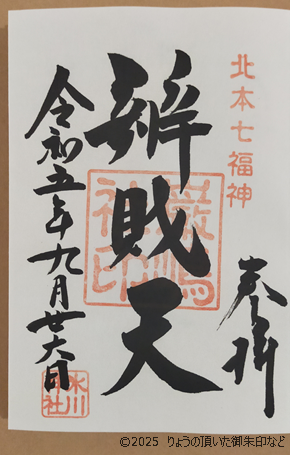 北本七福神
奉拝
辨財天
厳嶋
神印
令和五年九月廿六日
氷川
神社
©2025 りょうの頂いた御朱印など